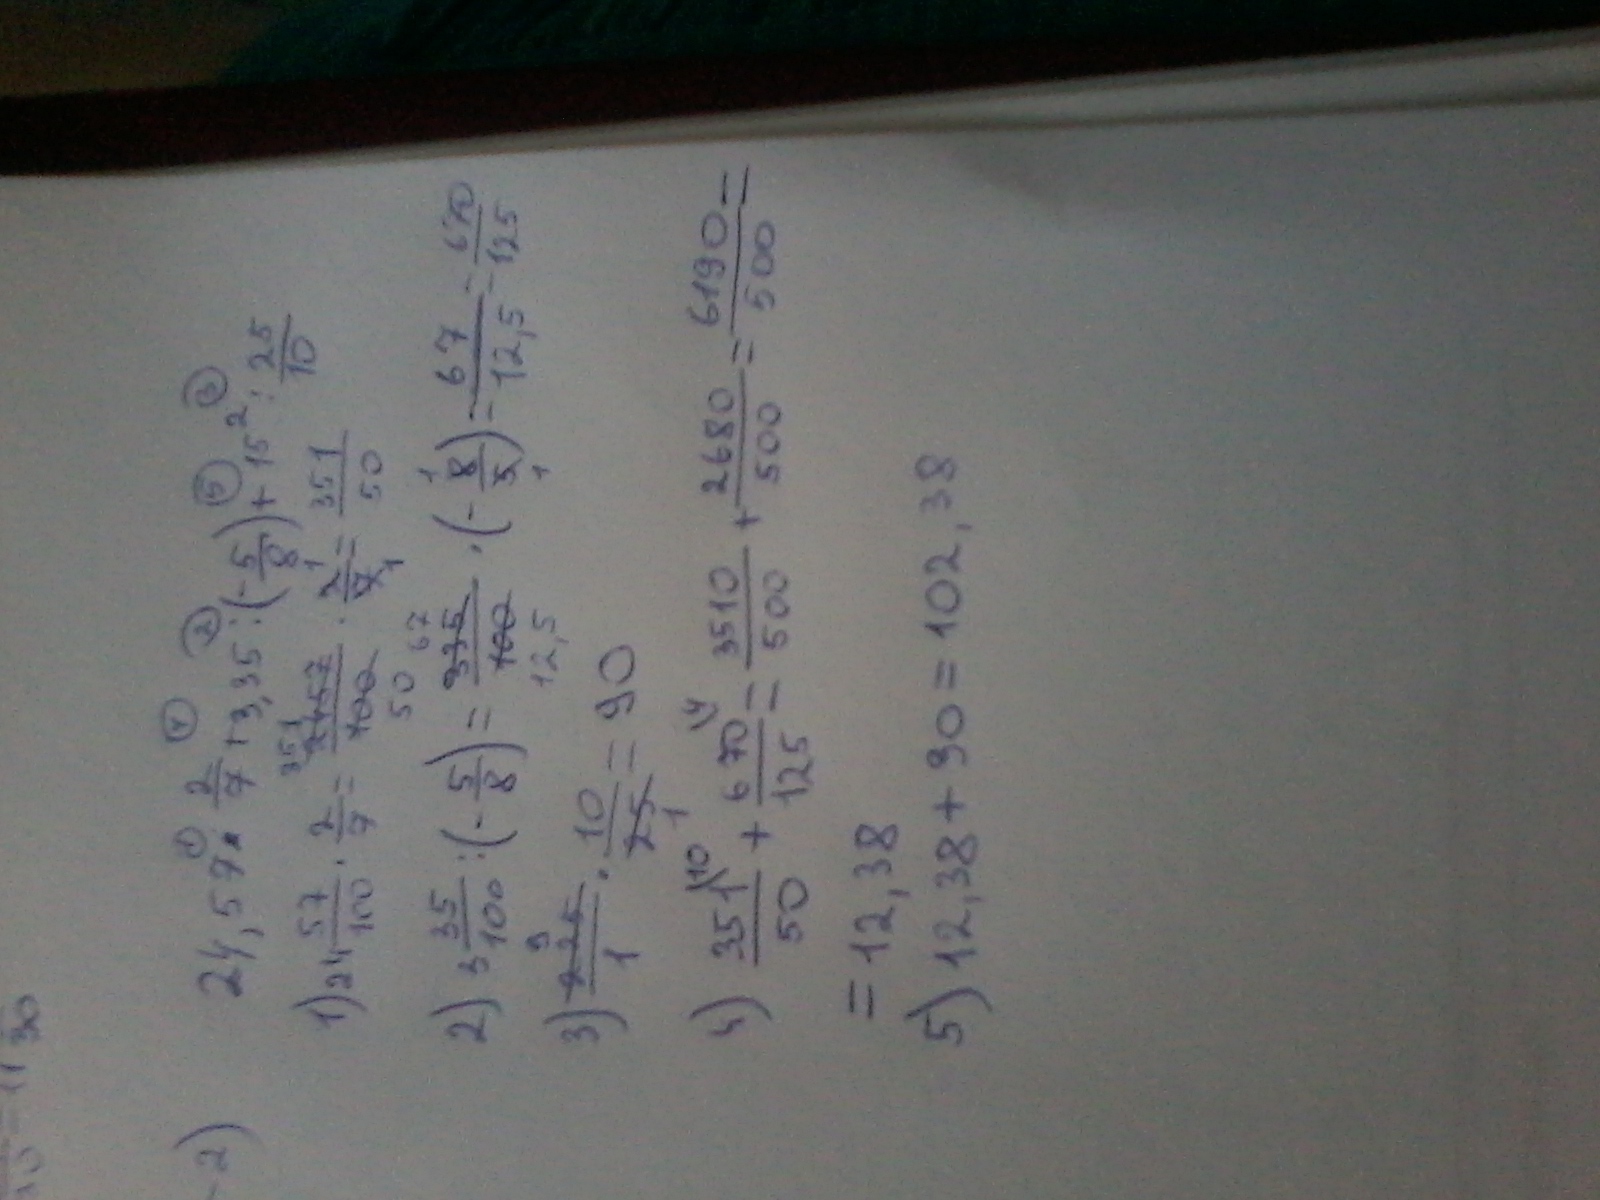 2) 24,57 · 2/7 + 3,35 : (-5/8) + 15² : 25/10
1) 24 57/100 · 2/7 = 2457/100 · 2/7 = 351/50
2) 3 35/100 : (-5/8) = 335/100 · (-8/5) = -67/12,5 = 670/125
3) 225/1 · 10/25 = 90
4) 351/50 + 670/125 = 3510/500 + 2680/500 = 6190/500 =
= 12,38
5) 12,38 + 90 = 102,38